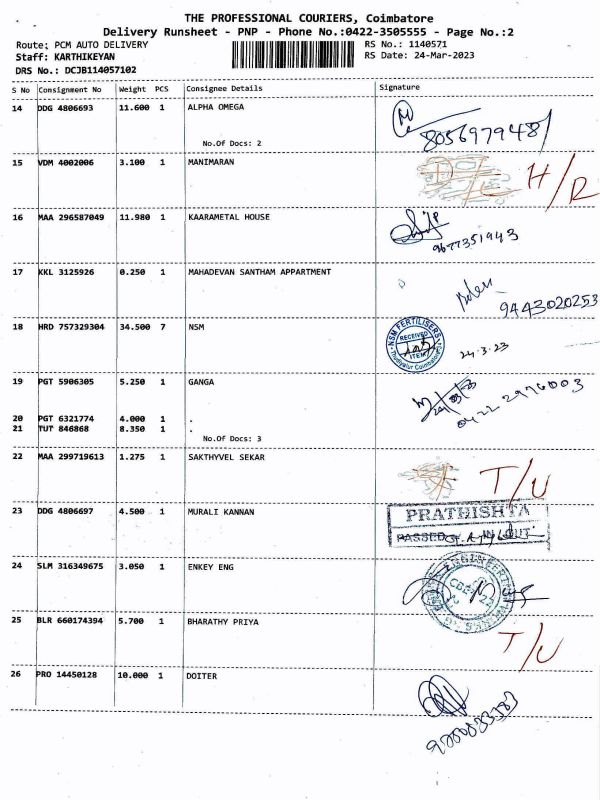 THE PROFESSIONAL COURIERS, Coimbatore
Delivery Runsheet - PNP - Phone No.:0422-3505555 - Page No.:2
Route: PCM AUTO DELIVERY
RS No.: 1140571
Staff: KARTHIKEYAN
RS Date: 24-Mar-2023
DRS No.: DCJB114057102
S No Consignment No Weight PCS Consignee Details Signature
14 DDG 4806693 11.600 1 ALPHA OMEGA
No.Of Docs: 2
8056979481
15 VDM 4002006 3.100 1 MANIMARAN
H/R
16 MAA 296587049 11.980 1 KAARAMETAL HOUSE
9677351943
17 KKL 3125926 0.250 1 MAHADEVAN SANTHAM APPARTMENT
9443020253
18 HRD 757329304 34.500 7 NSM
NSM FERTILISERS
RECEIVED
ITEM
24.3.23
19 PGT 5906305 5.250 1 GANGA
0422 2976003
20 PGT 6321774 4.000 1 .
21 TUT 846868 8.350 1 .
No.Of Docs: 3
22 MAA 299719613 1.275 1 SAKTHYVEL SEKAR
T/U
23 DDG 4806697 4.500 1 MURALI KANNAN
PRATHISHTA
PASSED
24 SLM 316349675 3.050 1 ENKEY ENG
25 BLR 660174394 5.700 1 BHARATHY PRIYA
T/U
26 PRO 14450128 10.000 1 DOITER